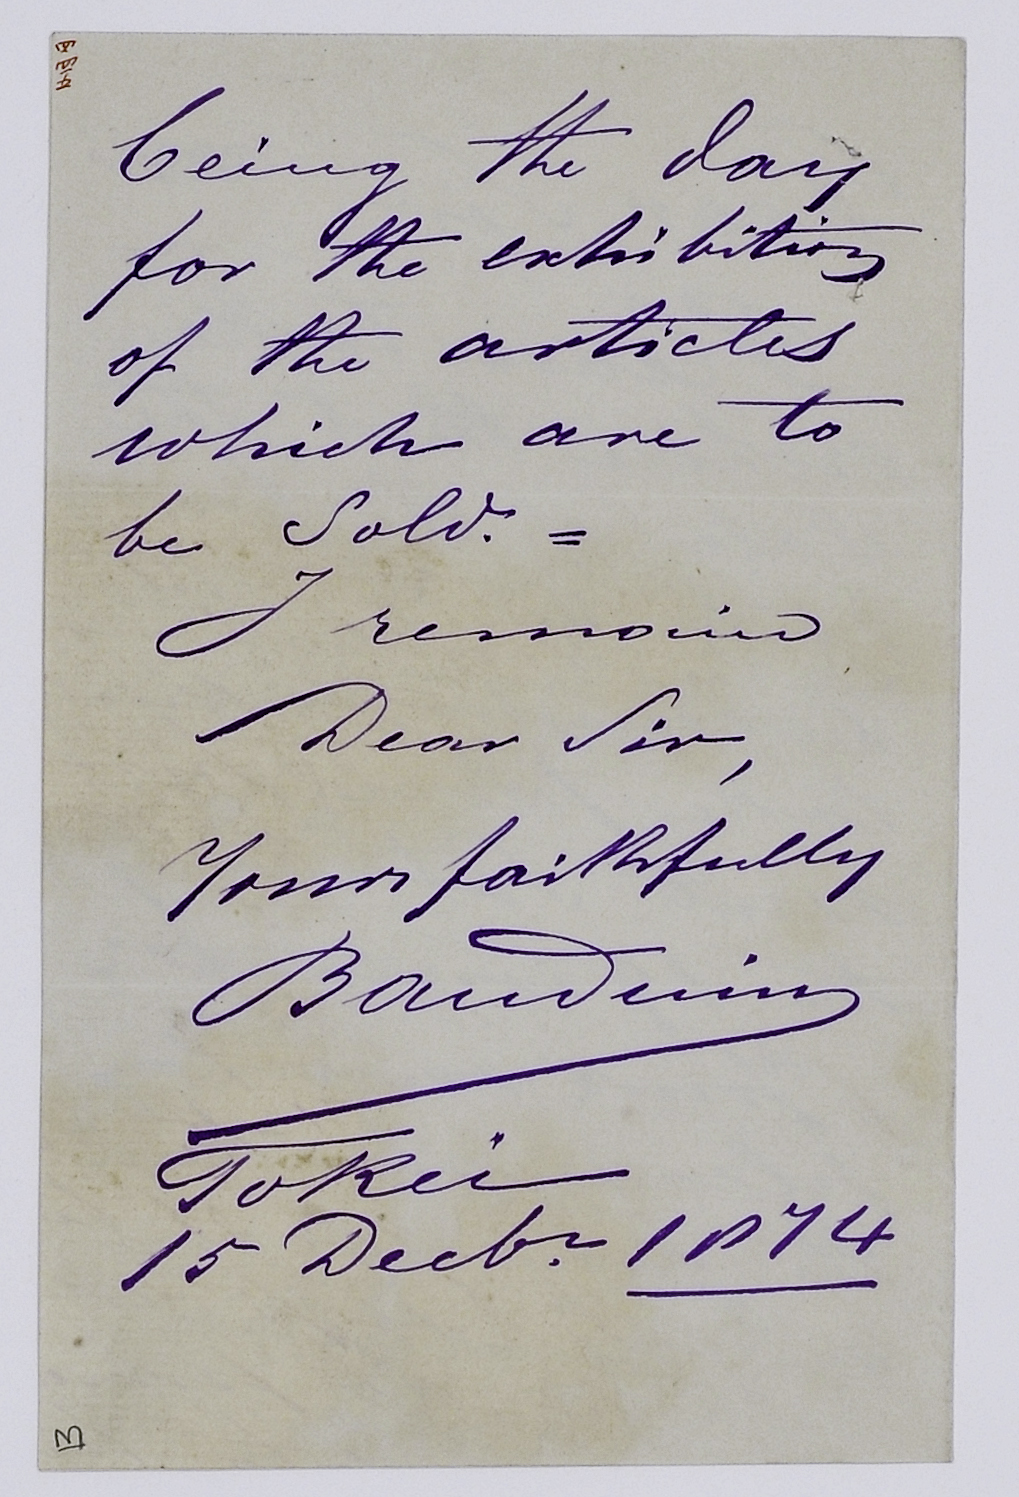 being the day
for the exhibition
of the articles
which are to
be Sold. =
I remain
Dear Sir,
Yours faithfully
Bauduin
Tokei
15 Decbr. 1874
B